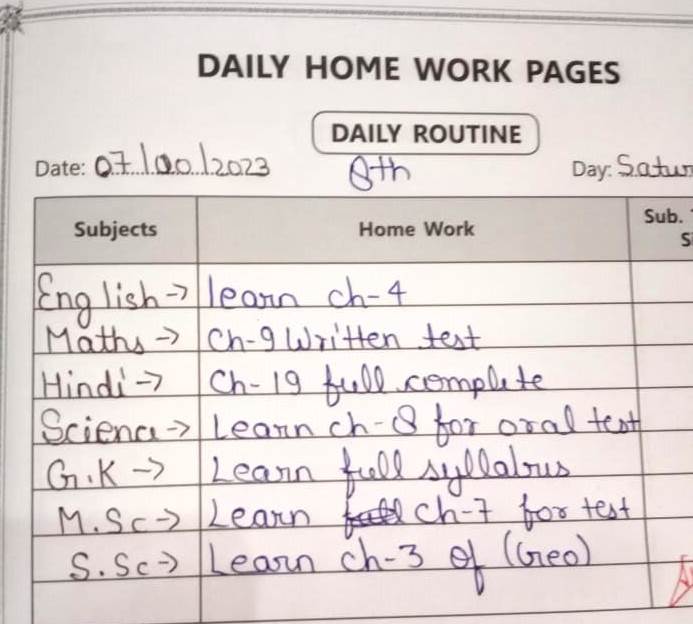 DAILY HOME WORK PAGES
DAILY ROUTINE
Date: 07/10/2023 8th Day: Satur
Subjects Home Work Sub.
English → learn ch-4
Maths → Ch-9 Written test
Hindi → Ch-19 full complete
Science → Learn ch-8 for oral test
G.K → Learn full syllabus
M.Sc → Learn ch-7 for test
S.Sc → Learn ch-3 of (Geo)